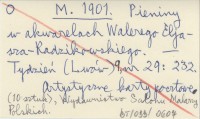 O M. 1901. Pieniny
w akwarelach Walerego Elja-
sza-Radzikowskiego.
Tydzień (Lwów) 9, nr 29: 232.
Artystyczne karty pocztowe
(10 sztuk), Wydawnictwo Salonu Malarzy
Polskich.